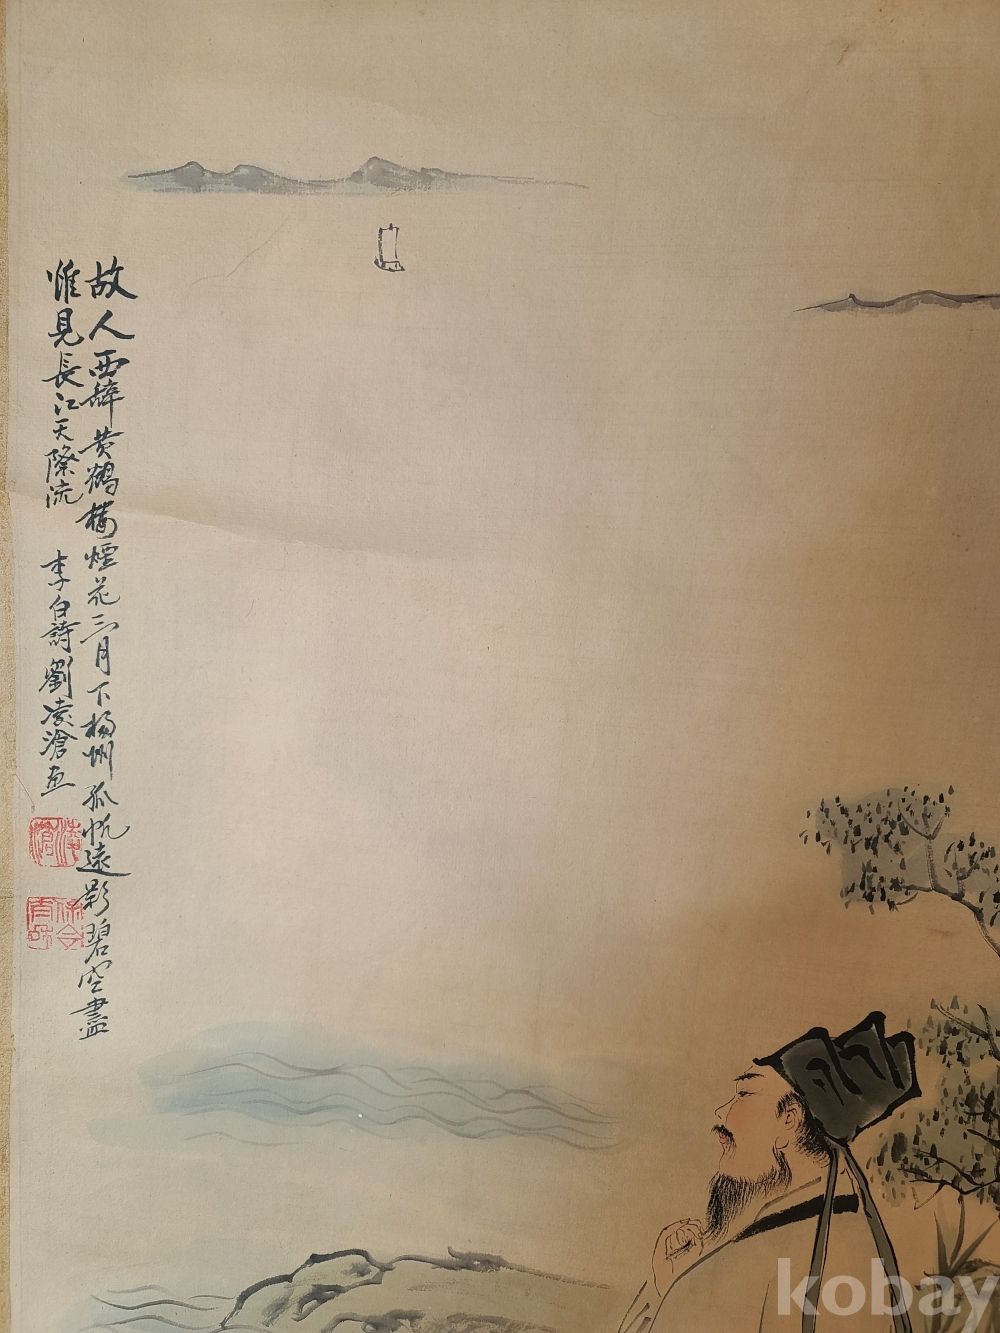 故人西辭黄鶴樓煙花三月下揚州孤帆遠影碧空盡
惟見長江天際流 李白詩劉凌滄画
凌滄
kobay